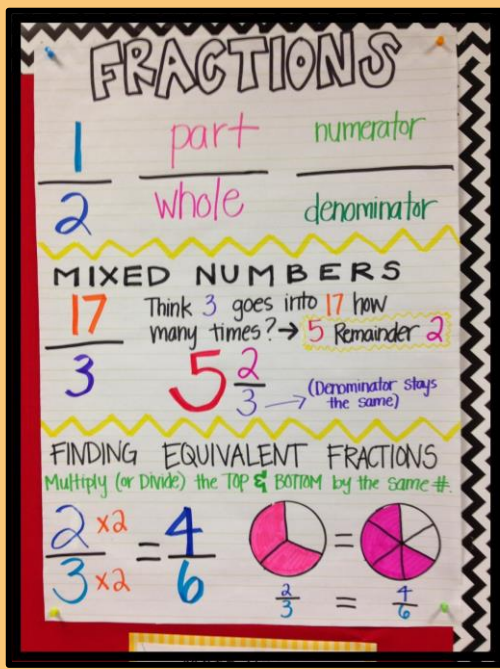 FRACTIONS
1 part numerator
2 whole denominator
MIXED NUMBERS
17 Think 3 goes into 17 how
many times?→ 5 Remainder 2
3 5 2/3 → (Denominator stays
the same)
FINDING EQUIVALENT FRACTIONS
Multiply (or Divide) the TOP & BOTTOM by the same #.
2 x2 = 4
3 x2 6
=
2/3 = 4/6